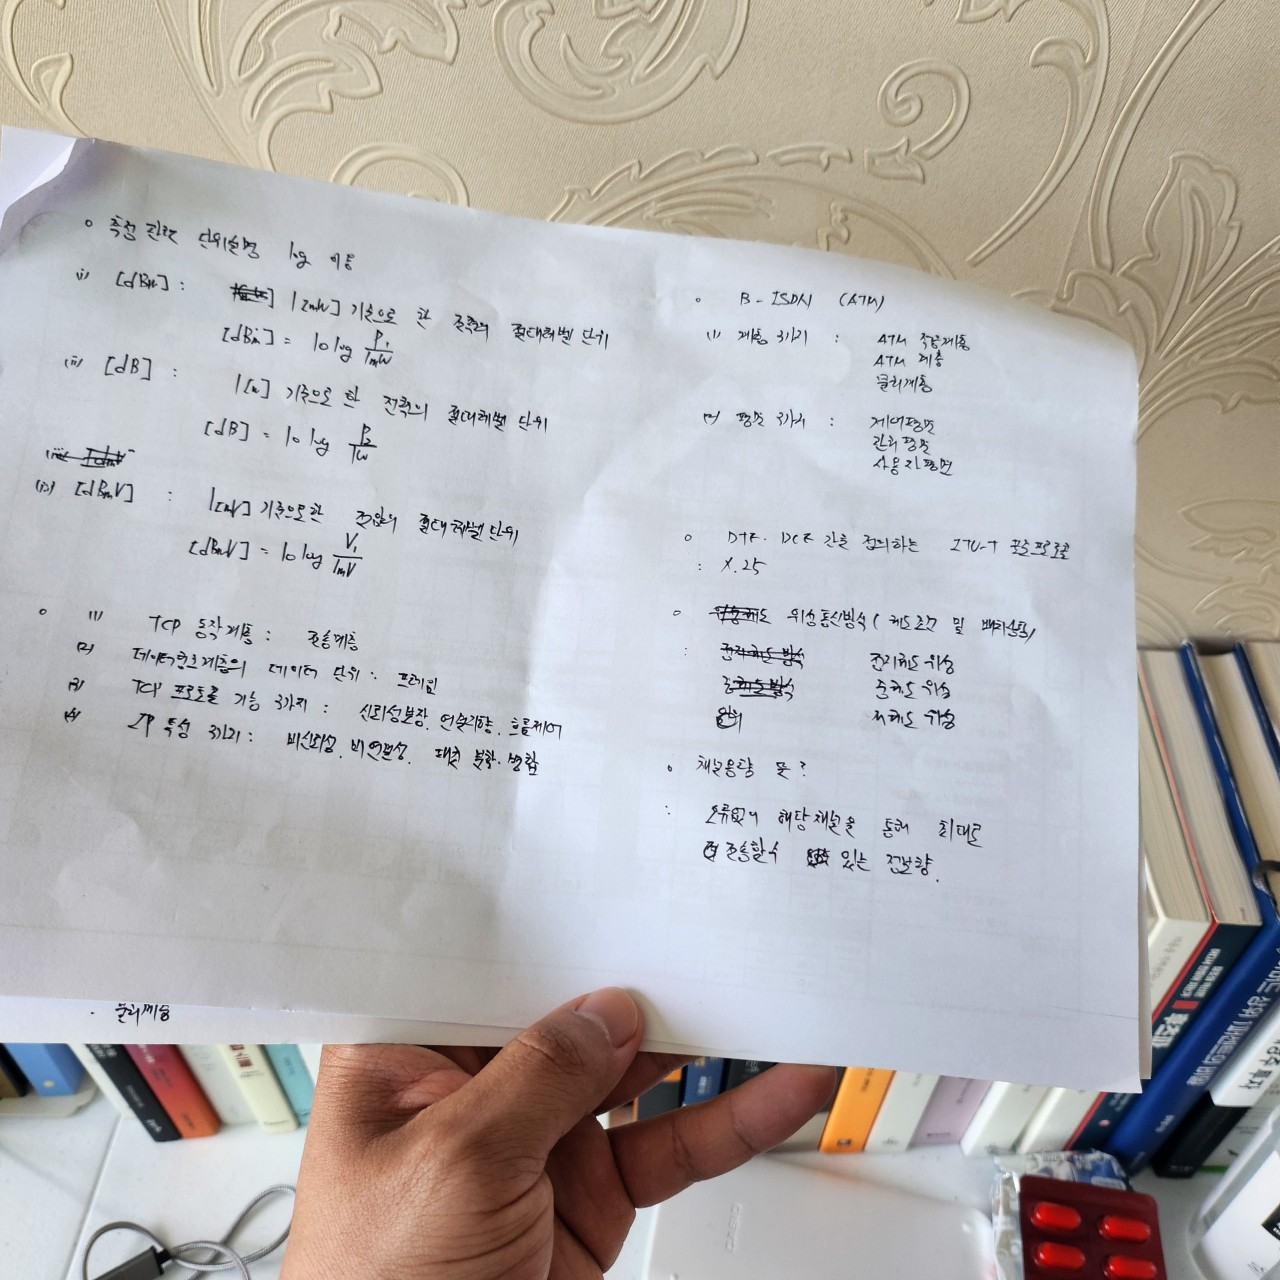 ○ 측정 관련 단위설명 log 이용
(i) [dBm] : 1[mW] 기준으로 한 전력의 절대레벨 단위
[dBm] = 10 log P₁/1mW
(ii) [dB] :
1[W] 기준으로 한 전력의 절대레벨 단위
[dB] = 10 log P₂/1W
(iii) [dBmV] : 1[mV] 기준으로한 전압의 절대레벨 단위
[dBmV] = 10 log V₁/1mV
○ (1) TCP 동작계층 : 전송계층
(2) 데이터링크계층의 데이터 단위 : 프레임
(3) TCP 프로토콜 기능 3가지 : 신뢰성보장, 연결지향, 흐름제어
(4) IP 특성 3가지 : 비신뢰성, 비연결성, 패킷 분할·병합
· 물리계층
○ B-ISDN (ATM)
(1) 계층 3가지 : ATM 적응계층
ATM 계층
물리계층
(2) 평면 3가지 : 제어평면
관리평면
사용자평면
○ DTE·DCE 간을 정의하는 ITU-T 표준프로토콜
: X.25
○ 위성통신방식 (궤도조건 및
: 정지궤도 위성
중궤도 위성
저궤도 위성
○ 채널용량 뜻?
: 오류없이 해당채널을 통해 최대로
전송할수 있는 정보량.